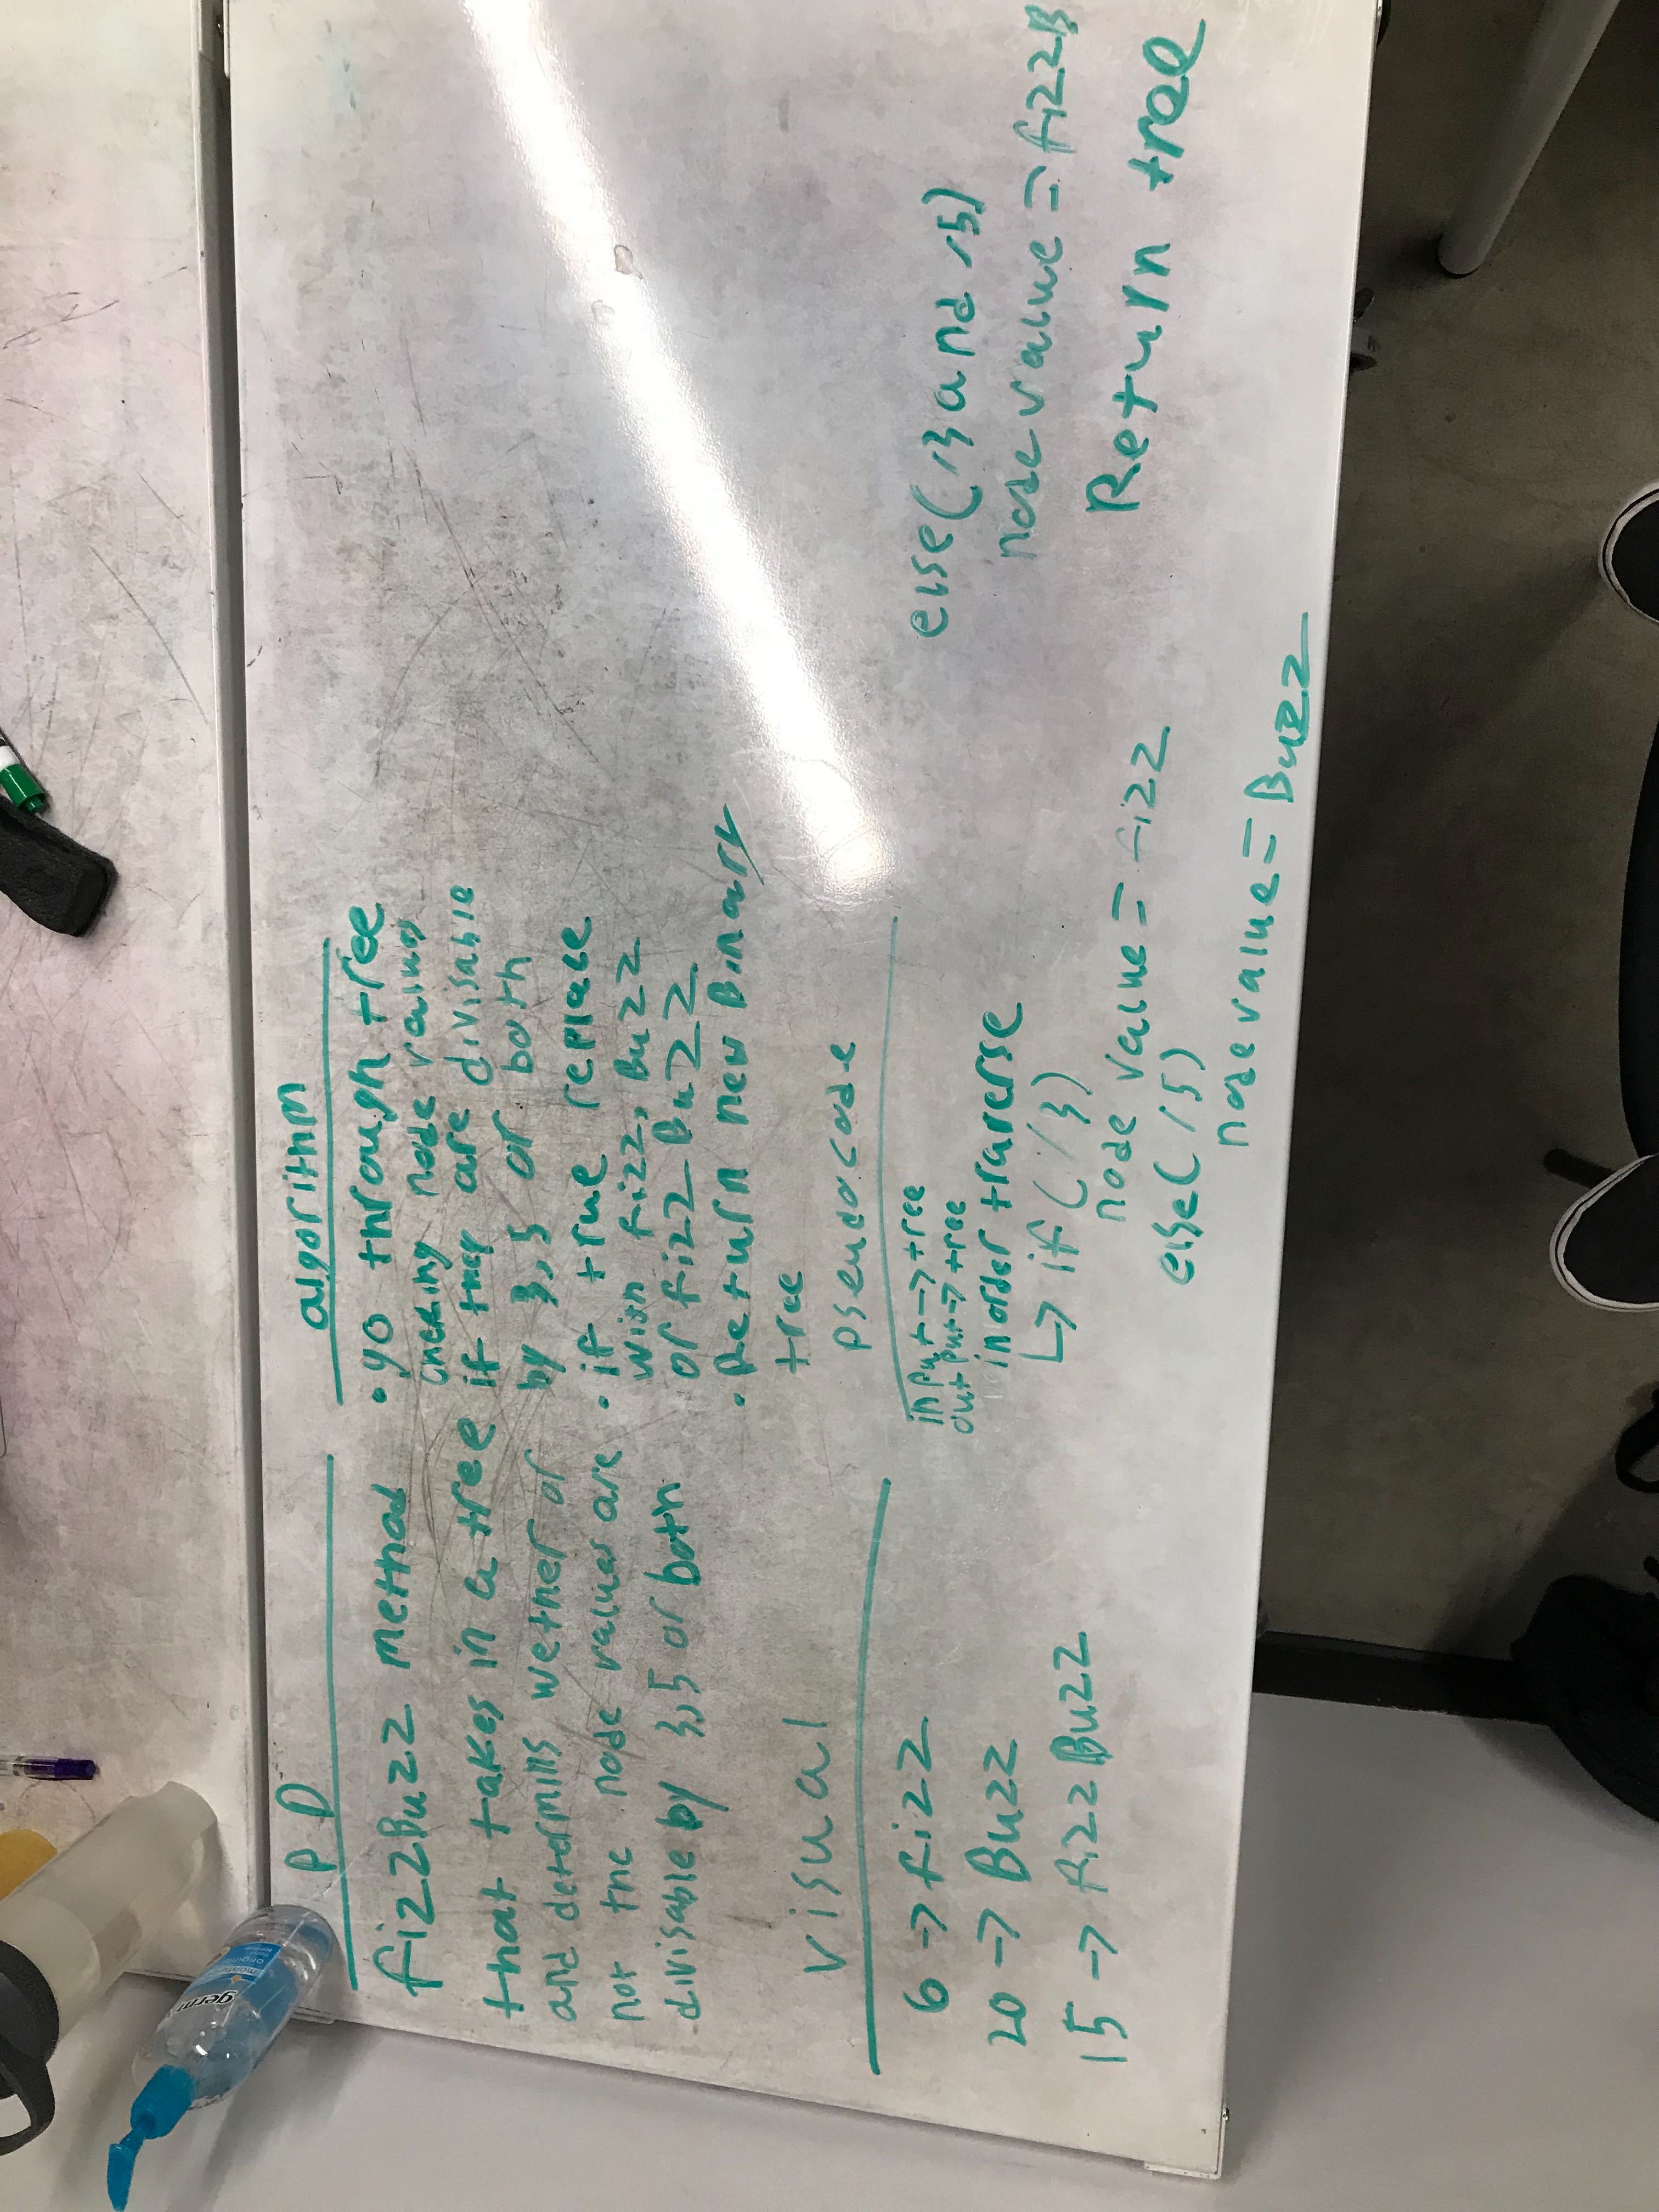 P D
fizzBuzz method
that takes in a tree
and determills wether or
not the node values are
divisable by 3,5 or both
visual
6 -> fizz
20 -> Buzz
15 -> fizzBuzz
algorithm
• go through tree
checking node values
if they are divisable
by 3,5 or both
• if true replace
with fizz, Buzz
or fizz Buzz
• Return new Binary
tree
pseudocode
input -> tree
output -> tree
inorder traverse
↳ if (/3)
node value = fizz
else(/5)
node value = Buzz
else(/3 and /5)
node value = fizzB
Return tree
germ